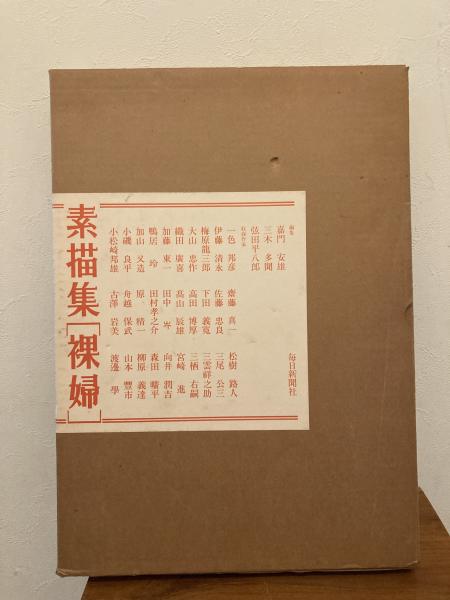 毎日新聞社
編集
嘉門 安雄
三木 多聞
弦田平八郎
収録作家
一色 邦彦 齋藤 真一 松樹 路人
伊藤 清永 佐藤 忠良 三尾 公三
梅原龍三郎 下田 義寛 三雲祥之助
大山 忠作 高田 博厚 三栖 右嗣
織田 廣喜 髙山 辰雄 宮崎 進
加藤 東一 田中 岑 向井 潤吉
鴨居 玲 田村孝之介 森田 曠平
加山 又造 原 精一 柳原 義達
小磯 良平 舟越 保武 山本 豐市
小松崎邦雄 古澤 岩美 渡邊 學
素描集[裸婦]